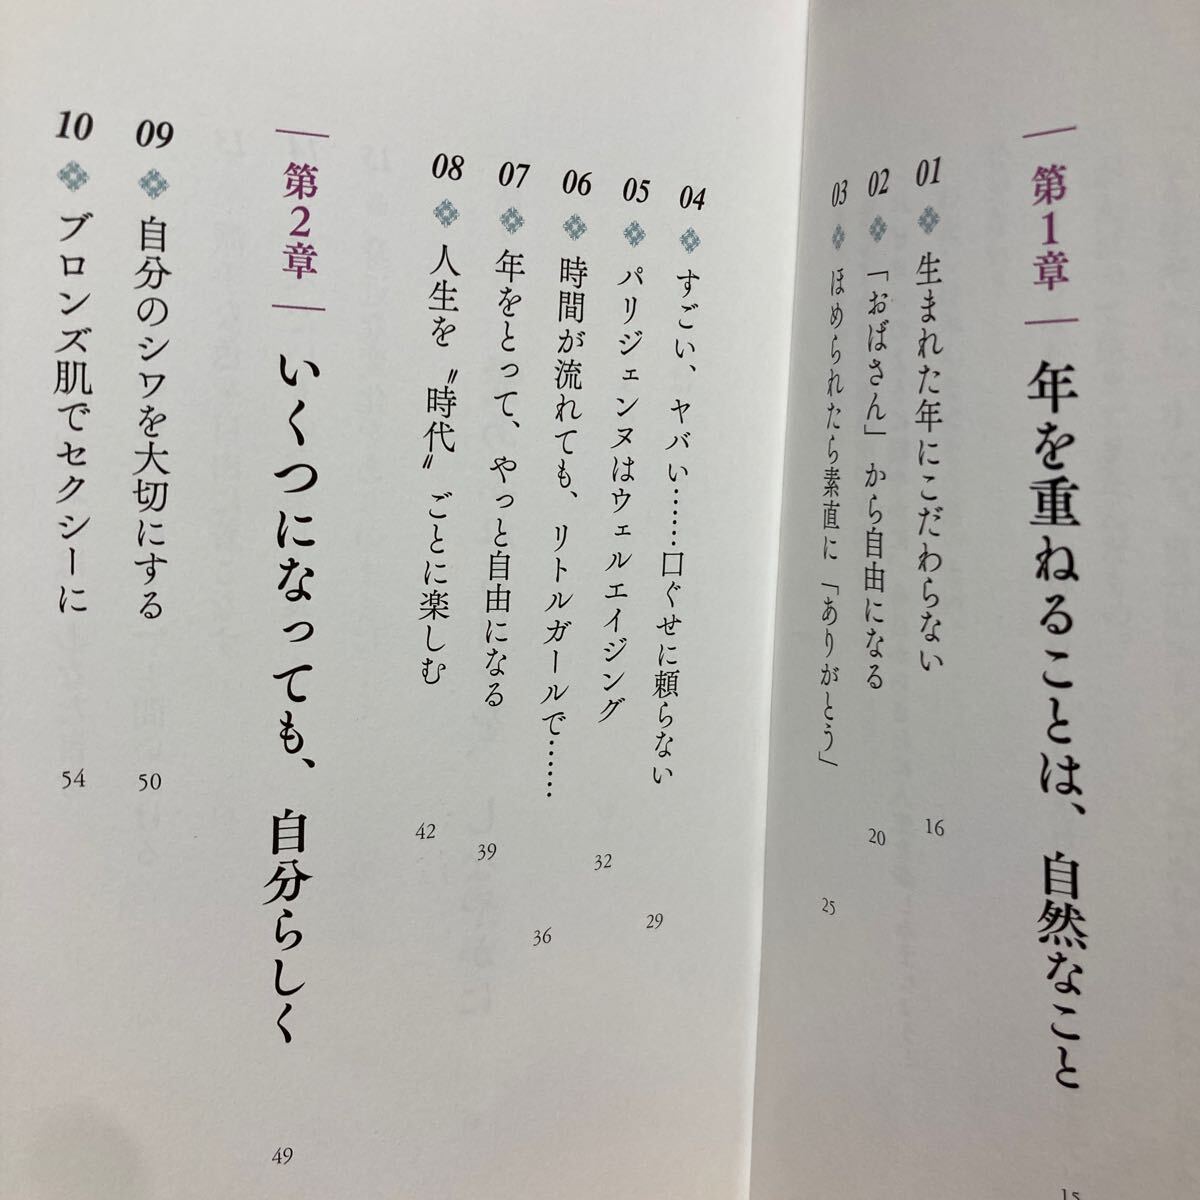 第1章 年を重ねることは、自然なこと 15
01 生まれた年にこだわらない 16
02 「おばさん」から自由になる 20
03 ほめられたら素直に「ありがとう」 25
04 すごい、ヤバい……口ぐせに頼らない 29
05 パリジェンヌはウェルエイジング 32
06 時間が流れても、リトルガールで…… 36
07 年をとって、やっと自由になる 39
08 人生を〝時代〟ごとに楽しむ 42
第2章 いくつになっても、自分らしく 49
09 自分のシワを大切にする 50
10 ブロンズ肌でセクシーに 54